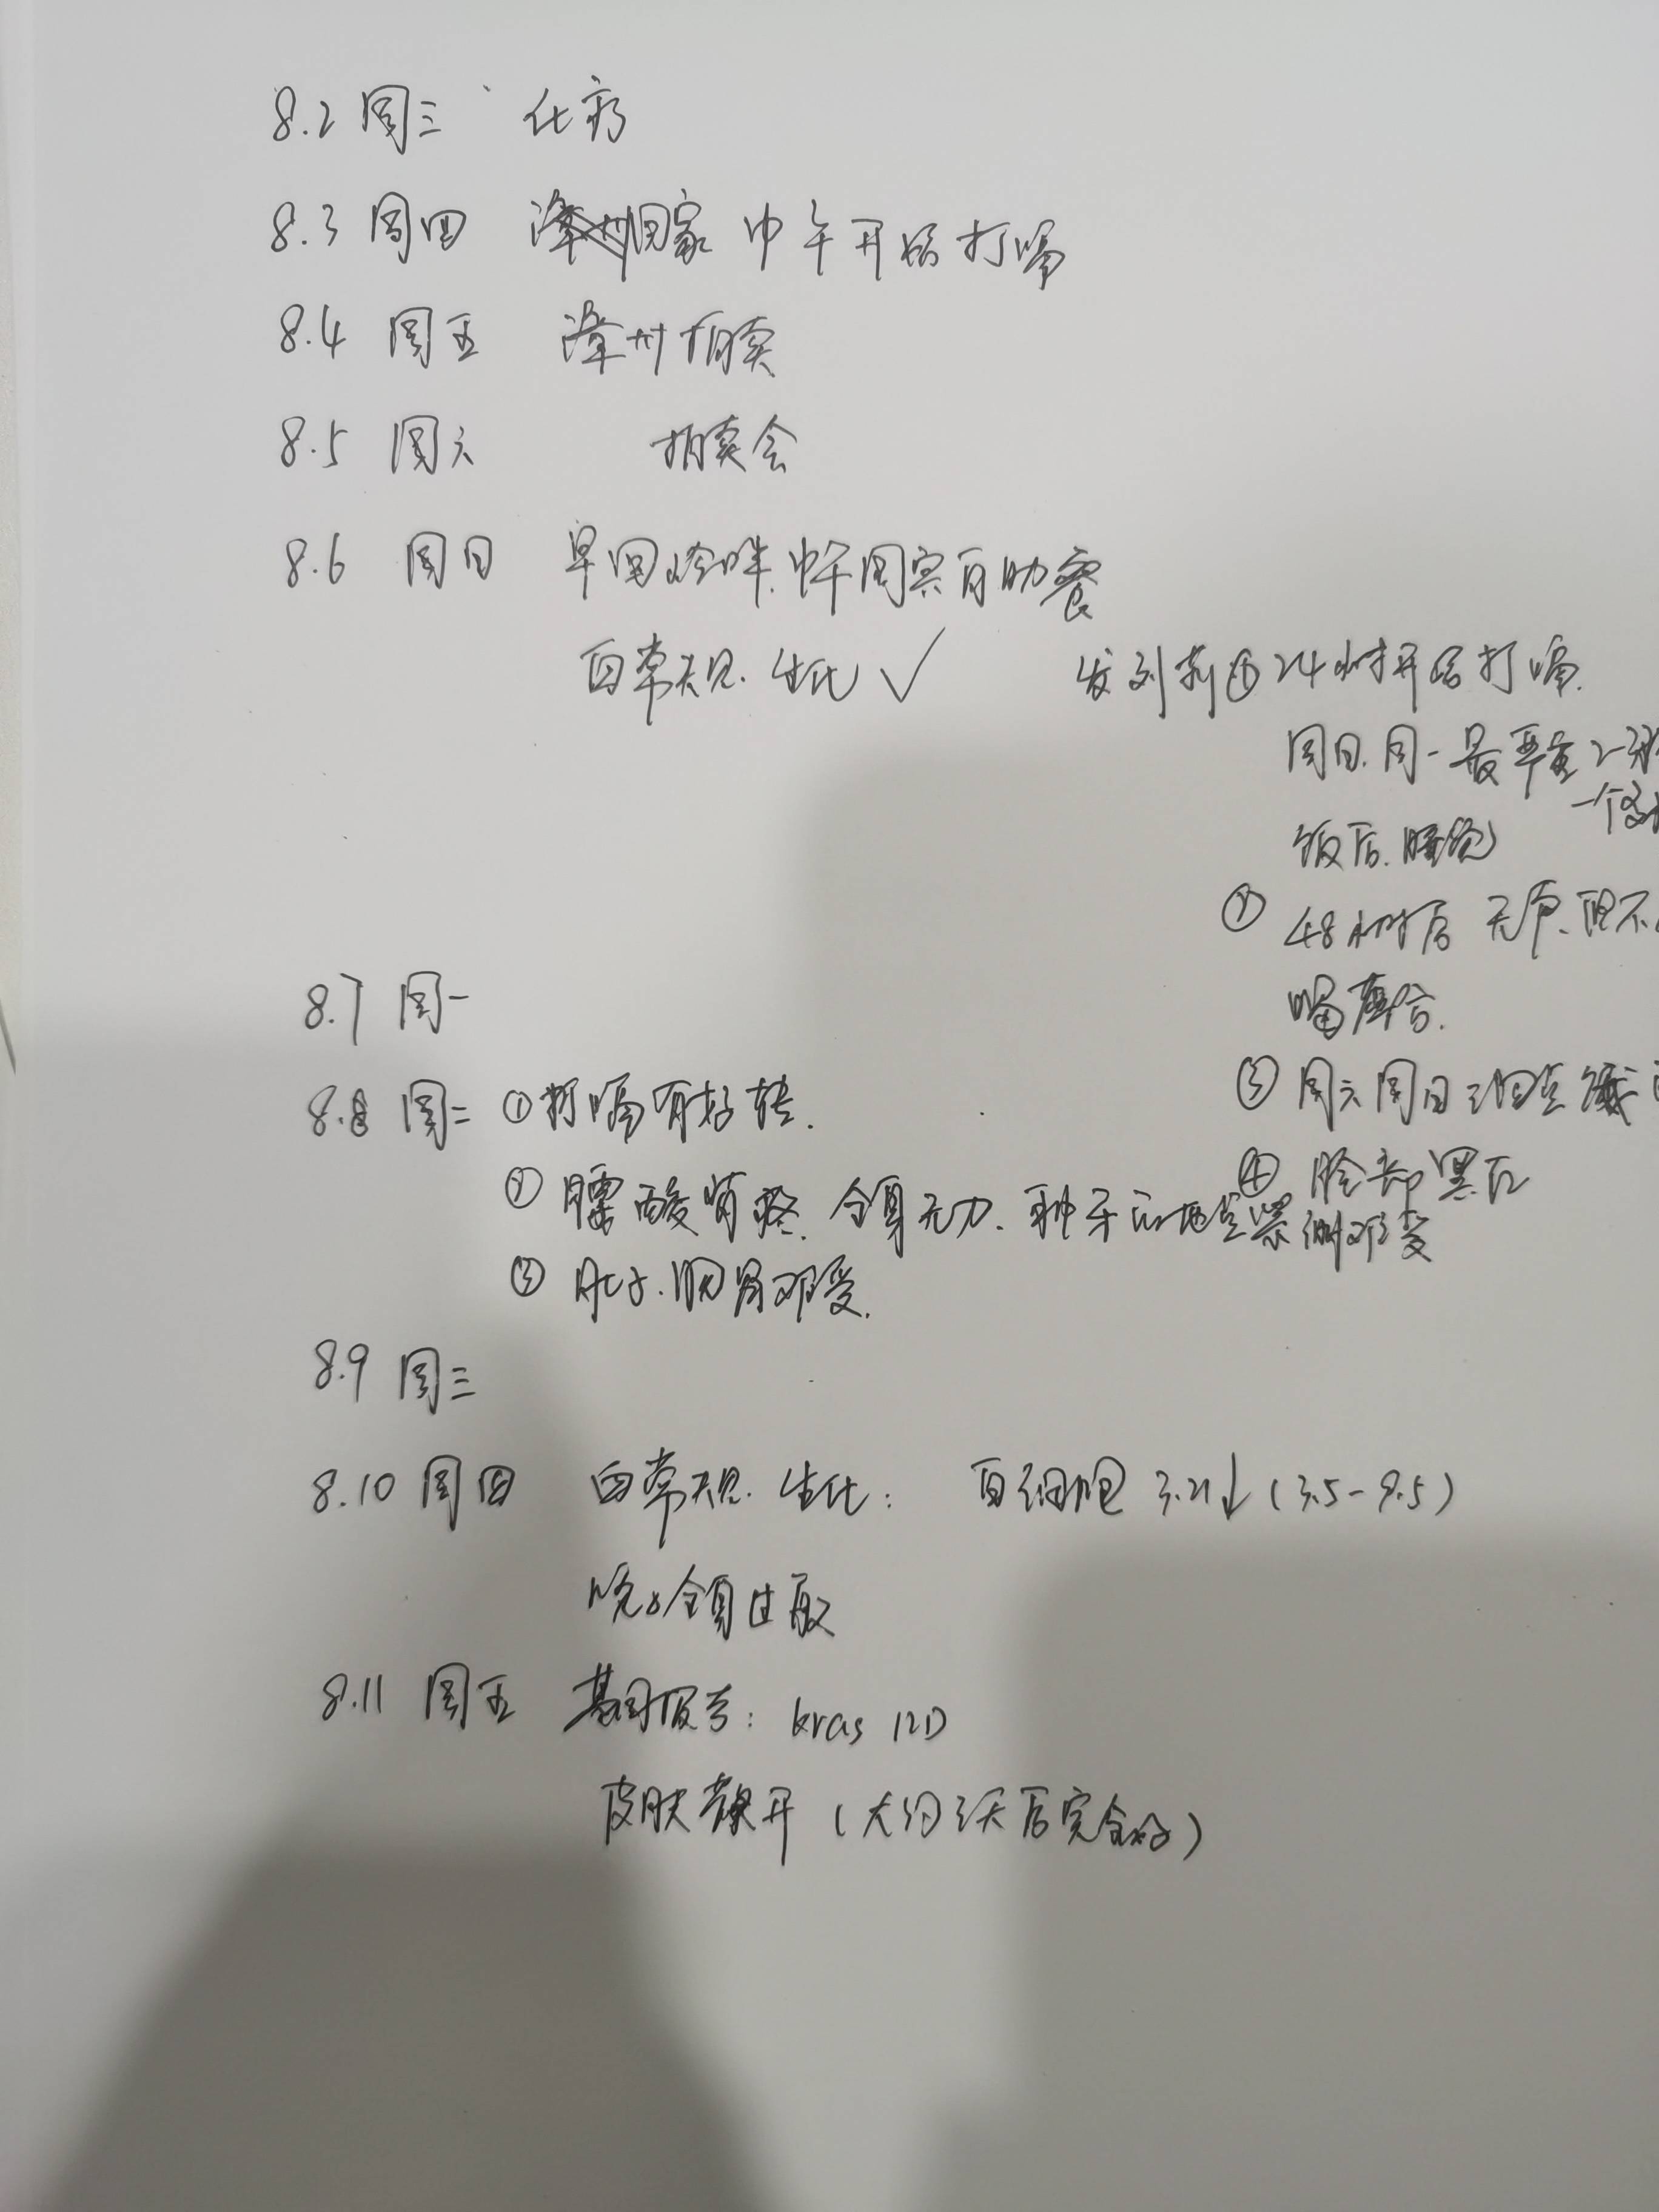 8.2 周三 化疗
8.3 周四 漳州回家 中午开始打嗝
8.4 周五 漳州拍卖
8.5 周六 拍卖会
8.6 周日 早回 中午国宾自助餐
血常规. 生化 ✓
发刘莉 ① 24小时开始打嗝.
周日.周一最严重
一个
饭后.睡觉
② 48小时后 无 但不
嗝
8.7 周一
③ 周六周日
8.8 周二 ① 打嗝有好转.
④ 脸部黑
② 腰酸背疼. 全身无力. 种牙 难受
③ 肚子.肠胃难受.
8.9 周三
8.10 周四 血常规. 生化: 白细胞 3.21↓(3.5-9.5)
晚上全身过敏
8.11 周五 基因报告: kras 12D
皮肤 开 (大约 天后完全好)